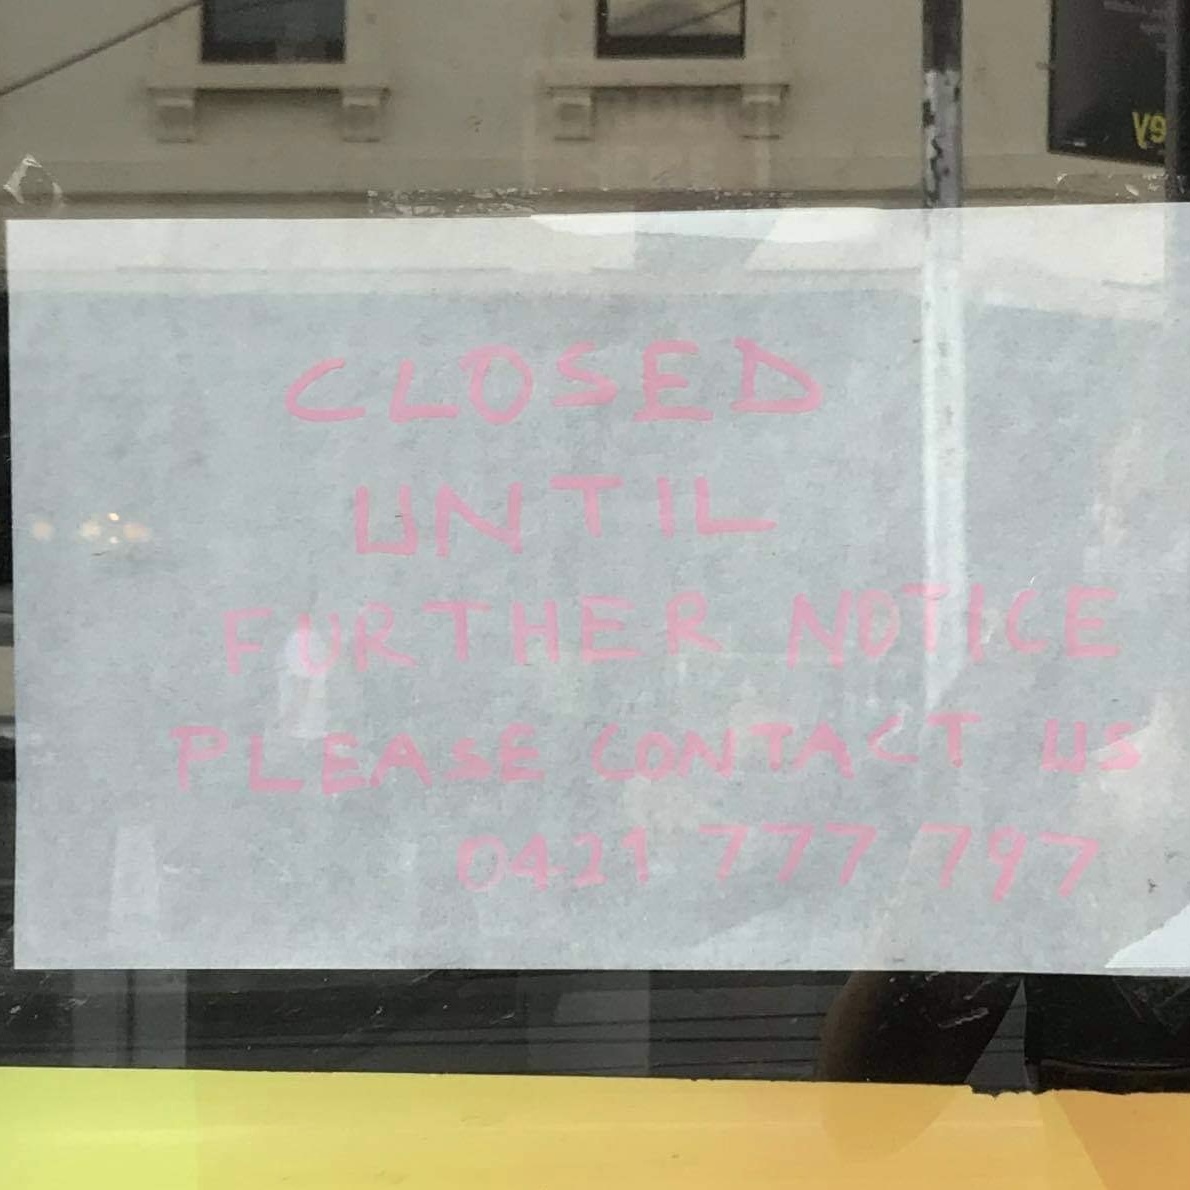 ey
CLOSED
UNTIL
FURTHER NOTICE
PLEASE CONTACT US
0421 777 797